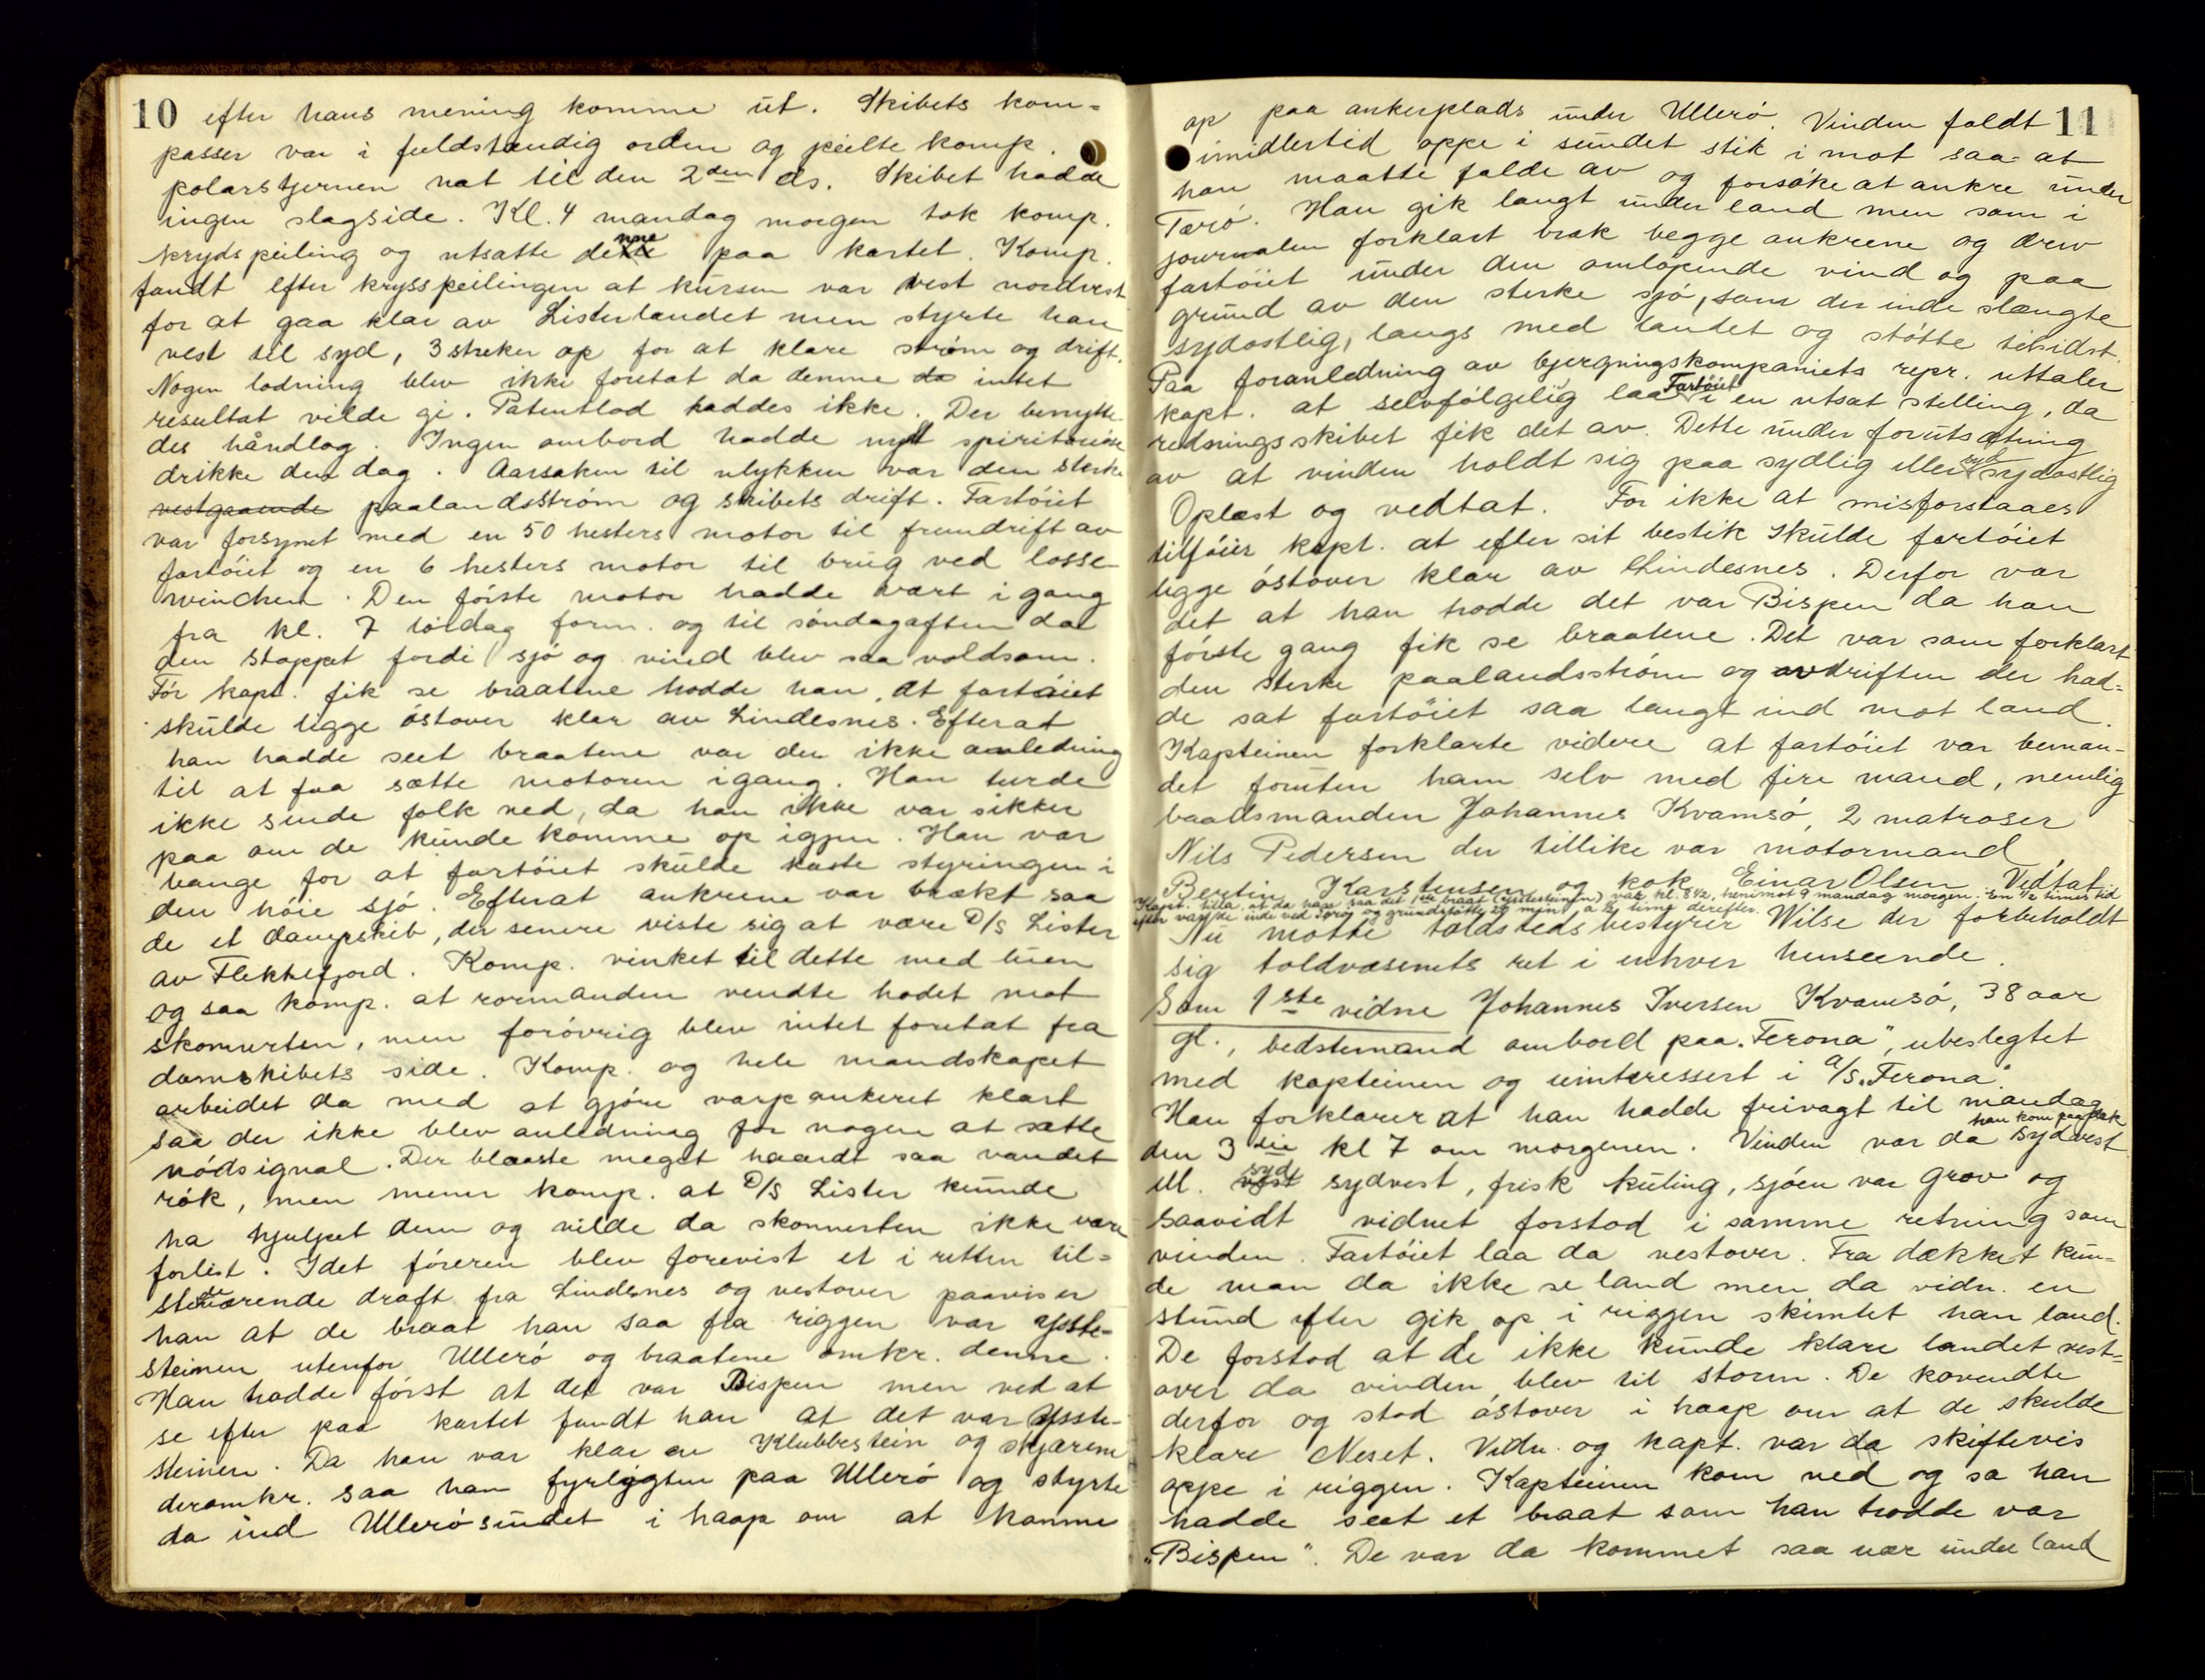 10
efter hans mening komme ut. Skibets kom=
passer var i fuldstændig orden og peilte komp.
polarstjernen nat til den 2den ds. Skibet hadde
ingen slagside. Kl. 4 mandag morgen tok komp.
krydspeiling og utsatte denne paa kartet. Komp.
fandt efter krysspeilingen at kursen var vest nordvest
for at gaa klar av Listerlandet men styrte han
vest til syd, 3 streker op for at klare strøm og drift.
Nogen lodning blev ikke foretat da denne da intet
resultat vilde gi. Patentlod haddes ikke. Der benytte-
des håndlog. Ingen ombord hadde nydt spirituøse
drikke den dag. Aarsaken til ulykken var den sterke
vestgaaende paalandsstrøm og skibets drift. Fartöiet
var forsynet med en 50 hesters motor til fremdrift av
fartöiet og en 6 hesters motor til brug ved losse-
winchen. Den förste motor hadde vært i gang
fra kl. 7 lördag form. og til söndagaften da
den stoppet fordi sjö og vind blev saa voldsom.
För kapt. fik se braatene trodde han, at fartöiet
skulde ligge östover klar av Lindesnes. Efterat
han hadde seet braatene var der ikke anledning
til at faa sætte motoren igang. Han turde
ikke sende folk ned, da han ikke var sikker
paa om de kunde komme op igjen. Han var
bange for at fartöiet skulde kaste styringen i
den höie sjö. Efterat ankrene var brækt saa
de et dampskib, der senere viste sig at være D/S Lister
av Flekkefjord. Komp. vinket til dette med luen
og saa komp. at rormanden vendte hodet mot
skonnerten, men forövrig blev intet foretat fra
damskibets side. Komp. og hele mandskapet
arbeidet da med at gjöre varpankeret klart
saa der ikke blev anledning for nogen at sætte
nödsignal. Der blaaste meget haardt saa vandet
rök, men mener komp. at D/S Lister kunde
ha hjulpet dem og vilde da skonnerten ikke være
forlist. Idet föreren blev forevist et i retten til=
stedeværende draft fra Lindesnes og vestover paaviser
han at de braat han saa fra riggen var Ytste-
steinen utenfor Ullerö og braatene omkr. denne.
Han trodde först at det var Bispen men ved at
se efter paa kartet fandt han at det var Ytste-
steinen. Da han var klar av Klubbestein og skjærene
deromkr. saa han fyrlygten paa Ullerö og styrte
da ind Ullerösundet i haap om at komme
11
op paa ankerplads under Ullerö. Vinden faldt
imidlertid oppe i sundet stik i mot saa at
han maatte falde av og forsöke at ankre under
Tarö. Han gik langt under land men som i
journalen forklart brak begge ankrene og drev
fartöiet under den omlöpende vind og paa
grund av den sterke sjö, som der inde slængte
sydostlig, langs med landet og stötte tilsidst.
Paa foranledning av bjergningskompaniets repr. uttaler
kapt. at selvfölgelig laa Fartöiet i en utsat stilling, da
redningsskibet fik det av. Dette under forutsætning
av at vinden holdt sig paa sydlig eller syd sydostlig
Oplæst og vedtat. For ikke at misforstaaes
tilföier kapt. at efter sit bestik skulde fartöiet
ligge östover klar av Lindesnes. Derfor var
det at han trodde det var Bispen da han
förste gang fik se braatene. Det var som forklart
den sterke paalandsstrøm og avdriften der had=
de sat fartöiet saa langt ind mot land.
Kapteinen forklarte videre at fartöiet var beman-
det foruten ham selv med fire mand, nemlig
baadsmanden Johannes Kvamsö, 2 matroser
Nils Pedersen der tillike var motormand,
Bertin Karstensen og kok Einar Olsen. Vedtat.
Kapt. tilla. at da han saa det 1ste braat (Ytstesteinen) var kl. 8½, henimot 9 mandag morgen. En ½ times tid
efter var de inde ved Tarö og grundstötte 20 min. a ½ time derefter.
Nu mötte toldstedsbestyrer Wilse der forbeholdt
sig toldvæsenets ret i enhver henseende.
Som 1ste vidne Johannes Iversen Kvamsö, 38 aar
gl., bedstemand ombord paa "Ferona", ubeslegtet
med kapteinen og uinteressert i a/s "Ferona".
Han forklarer at han hadde frivagt til mandag
den 3die kl 7 om morgenen. Vinden var da han kom paa dæk sydvest
ell. vest syd sydvest, frisk kuling, sjöen var grov og
saavidt vidnet forstod i samme retning som
vinden. Fartöiet laa da vestover. Fra dækket kun=
de man da ikke se land men da vidn. en
stund efter gik op i riggen skimtet han land.
De forstod at de ikke kunde klare landet vest=
over da vinden blev til storm. De kovendte
derfor og stod östover i haap om at de skulde
klare Neset. Vidn. og kapt. var da skiftevis
oppe i riggen. Kapteinen kom ned og sa han
hadde seet et braat som han trodde var
"Bispen". De var da kommet saa nær under land